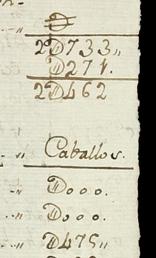 Đ
2Đ733„
Đ271.
2Đ462
„ Caballos.
„ Đooo.
„ Đooo.
„ Đ475„